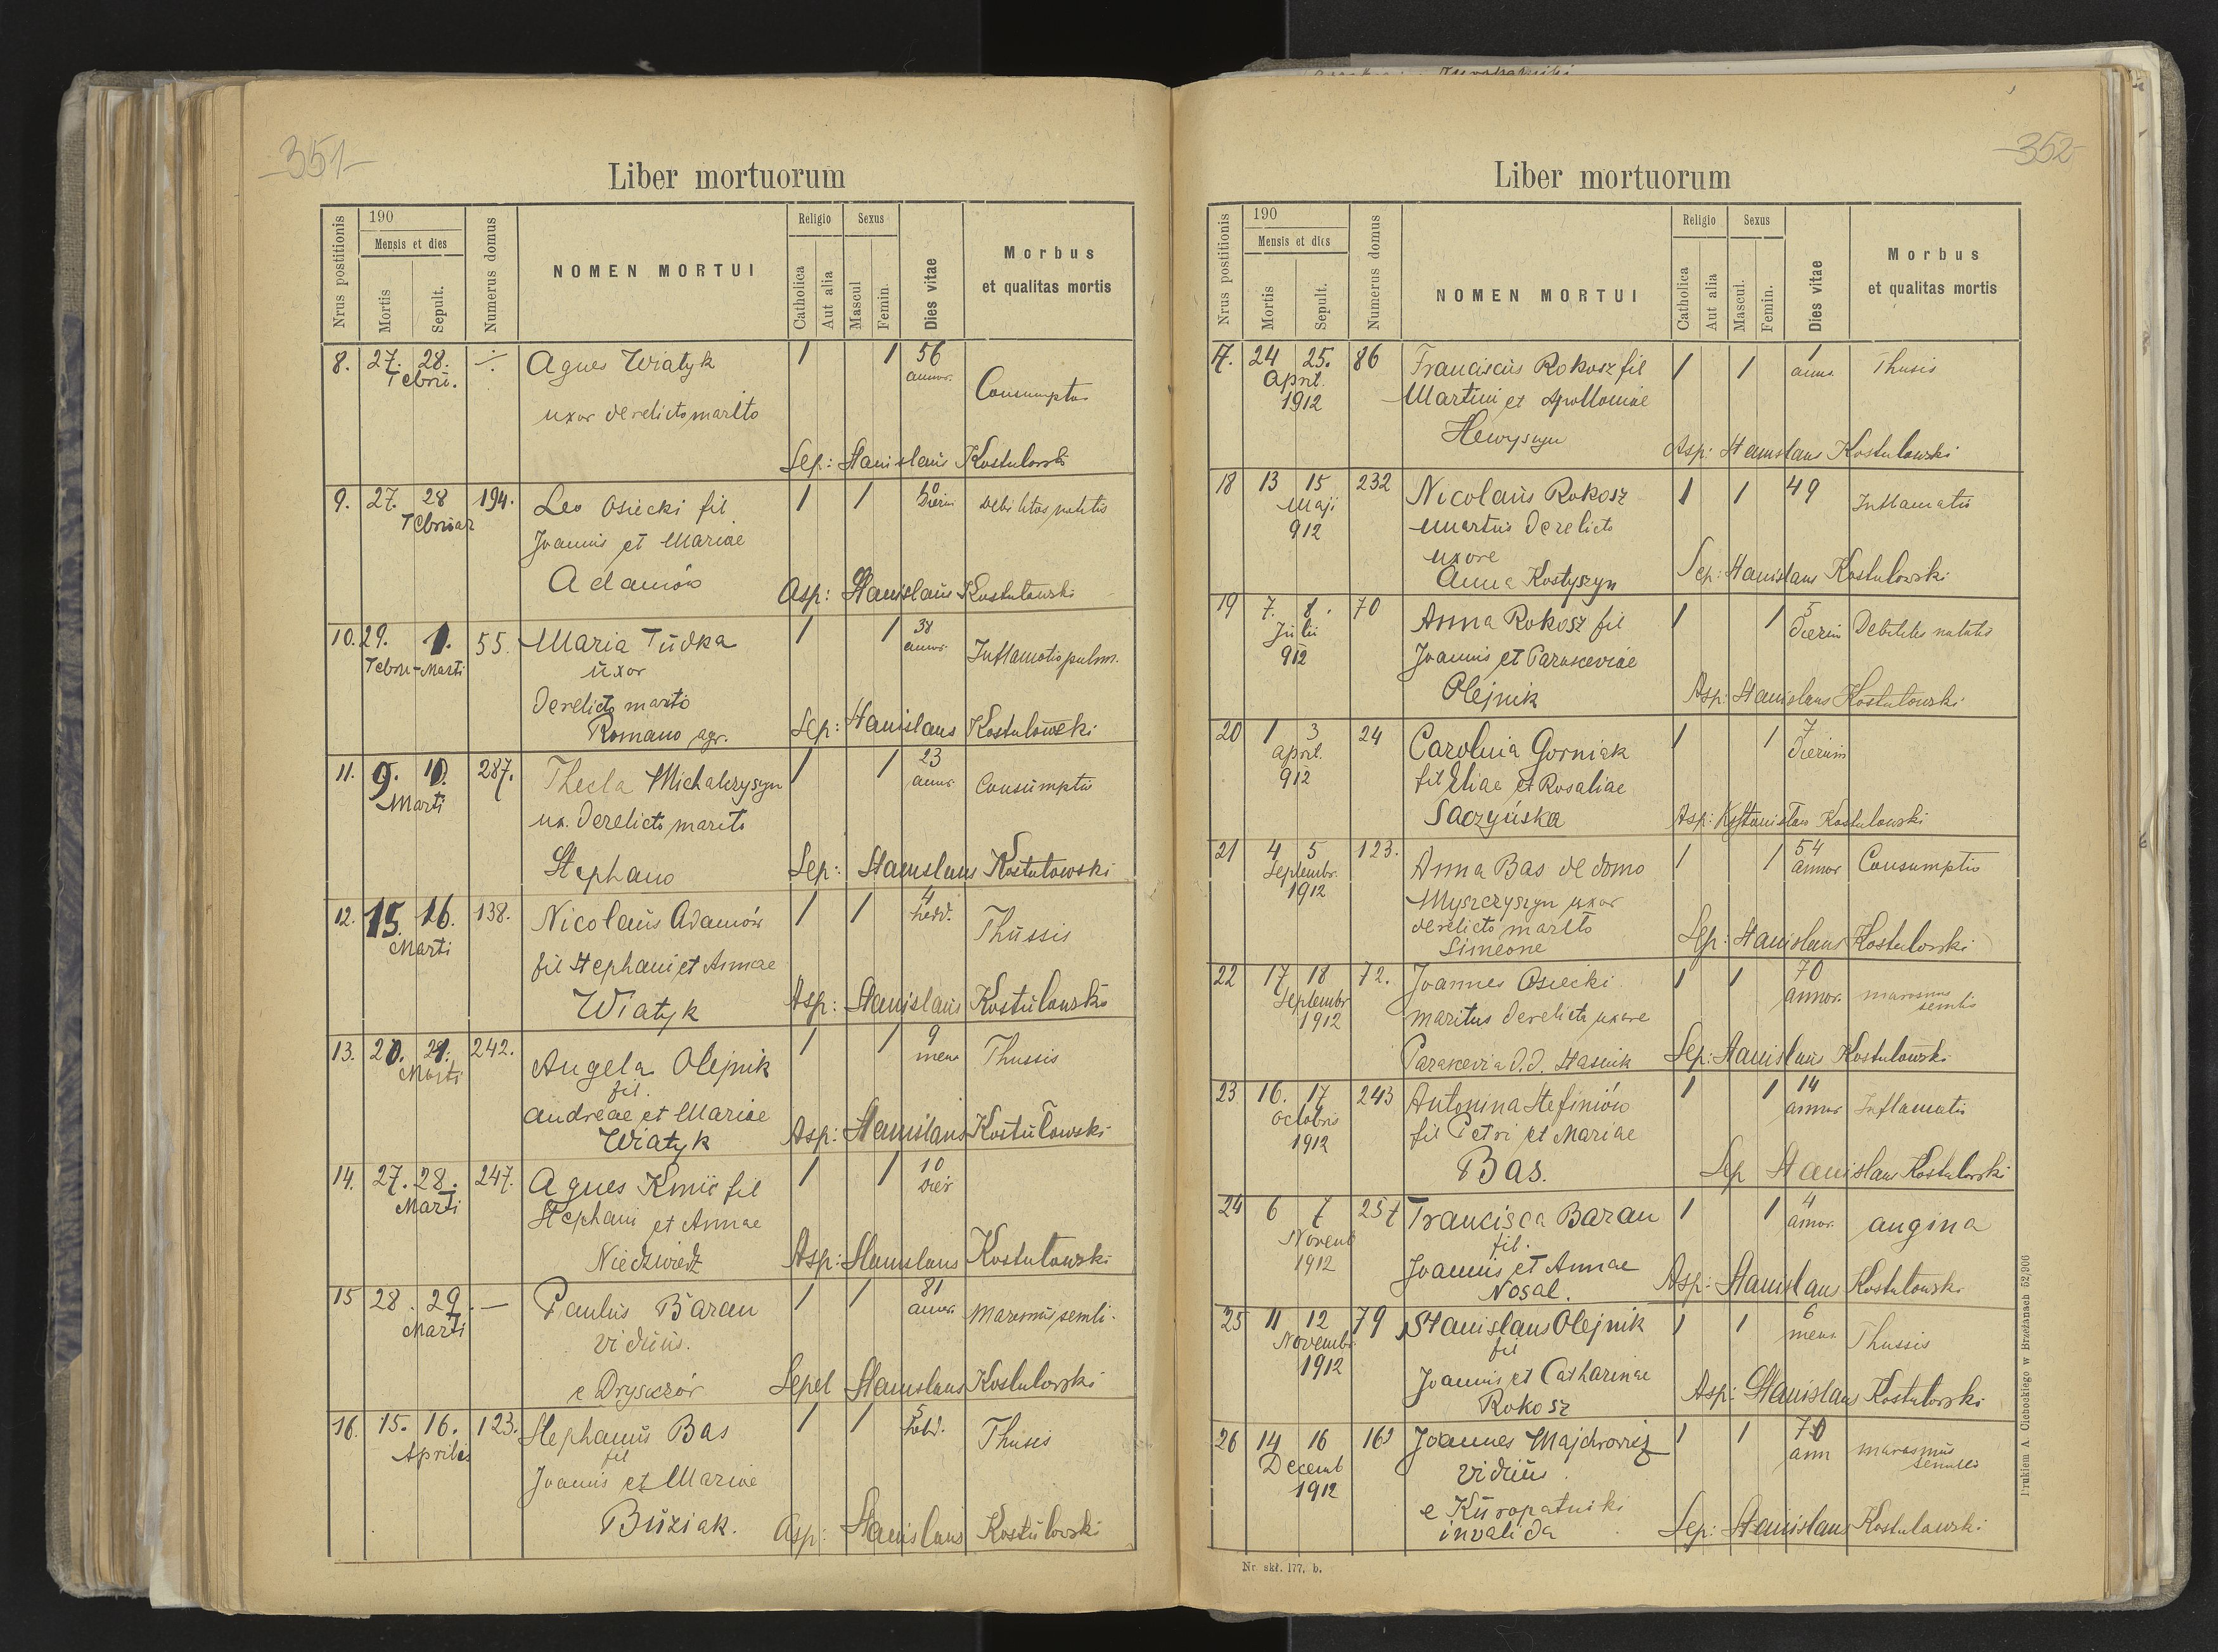 351
Liber mortuorum
Nrus postitionis
190
Mensis et dies
Mortis
Sepult.
Numerus domus
NOMEN MORTUI
Religio
Catholica
Aut alia
Sexus
Mascul
Femin.
Dies vitae
Morbus
et qualitas mortis
8. 27. 28. Agnes Wiatyk 1 1 56
Febru. annor.
uxor derelicto marito Consumptio
Sep: Stanislaus Kostulowski
9. 27. 28 194. Leo Osiecki fil 1 1 dierum Debilitas natalis
Februar
Joannis et Mariae
Adamów Asp: Stanislaus Kostulowski
10. 29. 1. 55. Maria Dudka 1 1 38
Febru-Marti uxor annor. Inflamatio pulm.
derelicto marito
Romano agr. Sep: Stanislaus Kostulowski
11. 9. 10. 287. Thecla Michalczyszyn 1 1 23
Marti annor. Consumptio
ux. derelicto marito
Stephano Sep: Stanislaus Kostulowski
12. 15. 16. 138. Nicolaus Adamów 1 1 4
Marti hebd. Thussis
fil Stephani et Annae
Wiatyk Asp: Stanislaus Kostulowski
13. 20. 21. 242. Angela Olejnik 1 1 9
Marti fil. mens Thussis
Andreae et Mariae
Wiatyk Asp: Stanislaus Kostulowski
14. 27. 28. 247. Agnes Kmić fil 1 1 10
Marti Stephani et Annae dier
Niedzwiedz Asp: Stanislaus Kostulowski
15 28. 29. — Paulus Baran 1 1 81
Marti viduus. annor. Marasmus senili.
e Dryszczów Sepel Stanislaus Kostulowski
16. 15. 16. 123. Stephanus Bas 1 1 5
Aprilis fil hebd. Thusis
Joannis et Mariae
Buziak. Asp: Stanislaus Kostulowski
352
Liber mortuorum
Nrus postitionis
190
Mensis et dies
Mortis
Sepult.
Numerus domus
NOMEN MORTUI
Religio
Catholica
Aut alia
Sexus
Mascul.
Femin.
Dies vitae
Morbus
et qualitas mortis
17. 24 25. 86 Franciscus Rokosz fil 1 1 1
April. Martini et Apolloniae anni Thusis
1912
Asp: Stanislaus Kostulowski
18 13 15 232 Nicolaus Rokosz 1 1 49
Maji maritus derelicto Inflamatio
912 uxore
Anna Kostyszyn Sep: Stanislaus Kostulowski
19 7. 8. 70 Anna Rokosz fil 1 1 5
Julii dierum Debilitas natalis
912 Joannis et Parasceviae
Olejnik Asp: Stanislaus Kostulowski
20 1 3 24 Carolina Gorniak 1 1 7
April. dierum
912 fil Eliae et Rosaliae
Saczyńska Asp: Stanislaw Kostulowski
21 4 5 123. Anna Bas de domo 1 1 54
Septembr. annor Consumptio
1912 Myszczyszyn uxor
derelicto marito
Simeone Sep: Stanislaus Kostulowski
22 17 18 72. Joannes Osiecki 1 1 70
Septembr annor. marasmus
1912 maritus derelicta uxore senilis
Parascevia d.d. Stasiuk Sep: Stanislaus Kostulowski
23 16. 17 243 Antonina Stefiniów 1 1 14
Octobris fil Petri et Mariae annor Inflamatio
1912
Bas. Sep Stanislaus Kostulowski
24 6 7 257 Francisca Baran 1 1 4
Novemb fil. annor. angina
1912 Joannis et Annae
Nosal. Asp: Stanislaus Kostulowski
25 11 12 79 Stanislaus Olejnik 1 1 6
Novembr. fil mens Thussis
1912 Joannis et Catharinae
Rokosz Asp: Stanislaus Kostulowski
26 14 16 Joannes Majchrowicz 1 1 70
Decemb viduus ann marasmus
1912 senilis
e Kuropatniki
invalida Sep: Stanislaus Kostulowski
Nr. skł. 177. b.
Drukiem A. Cichockiego w Brzeżanach 52,906